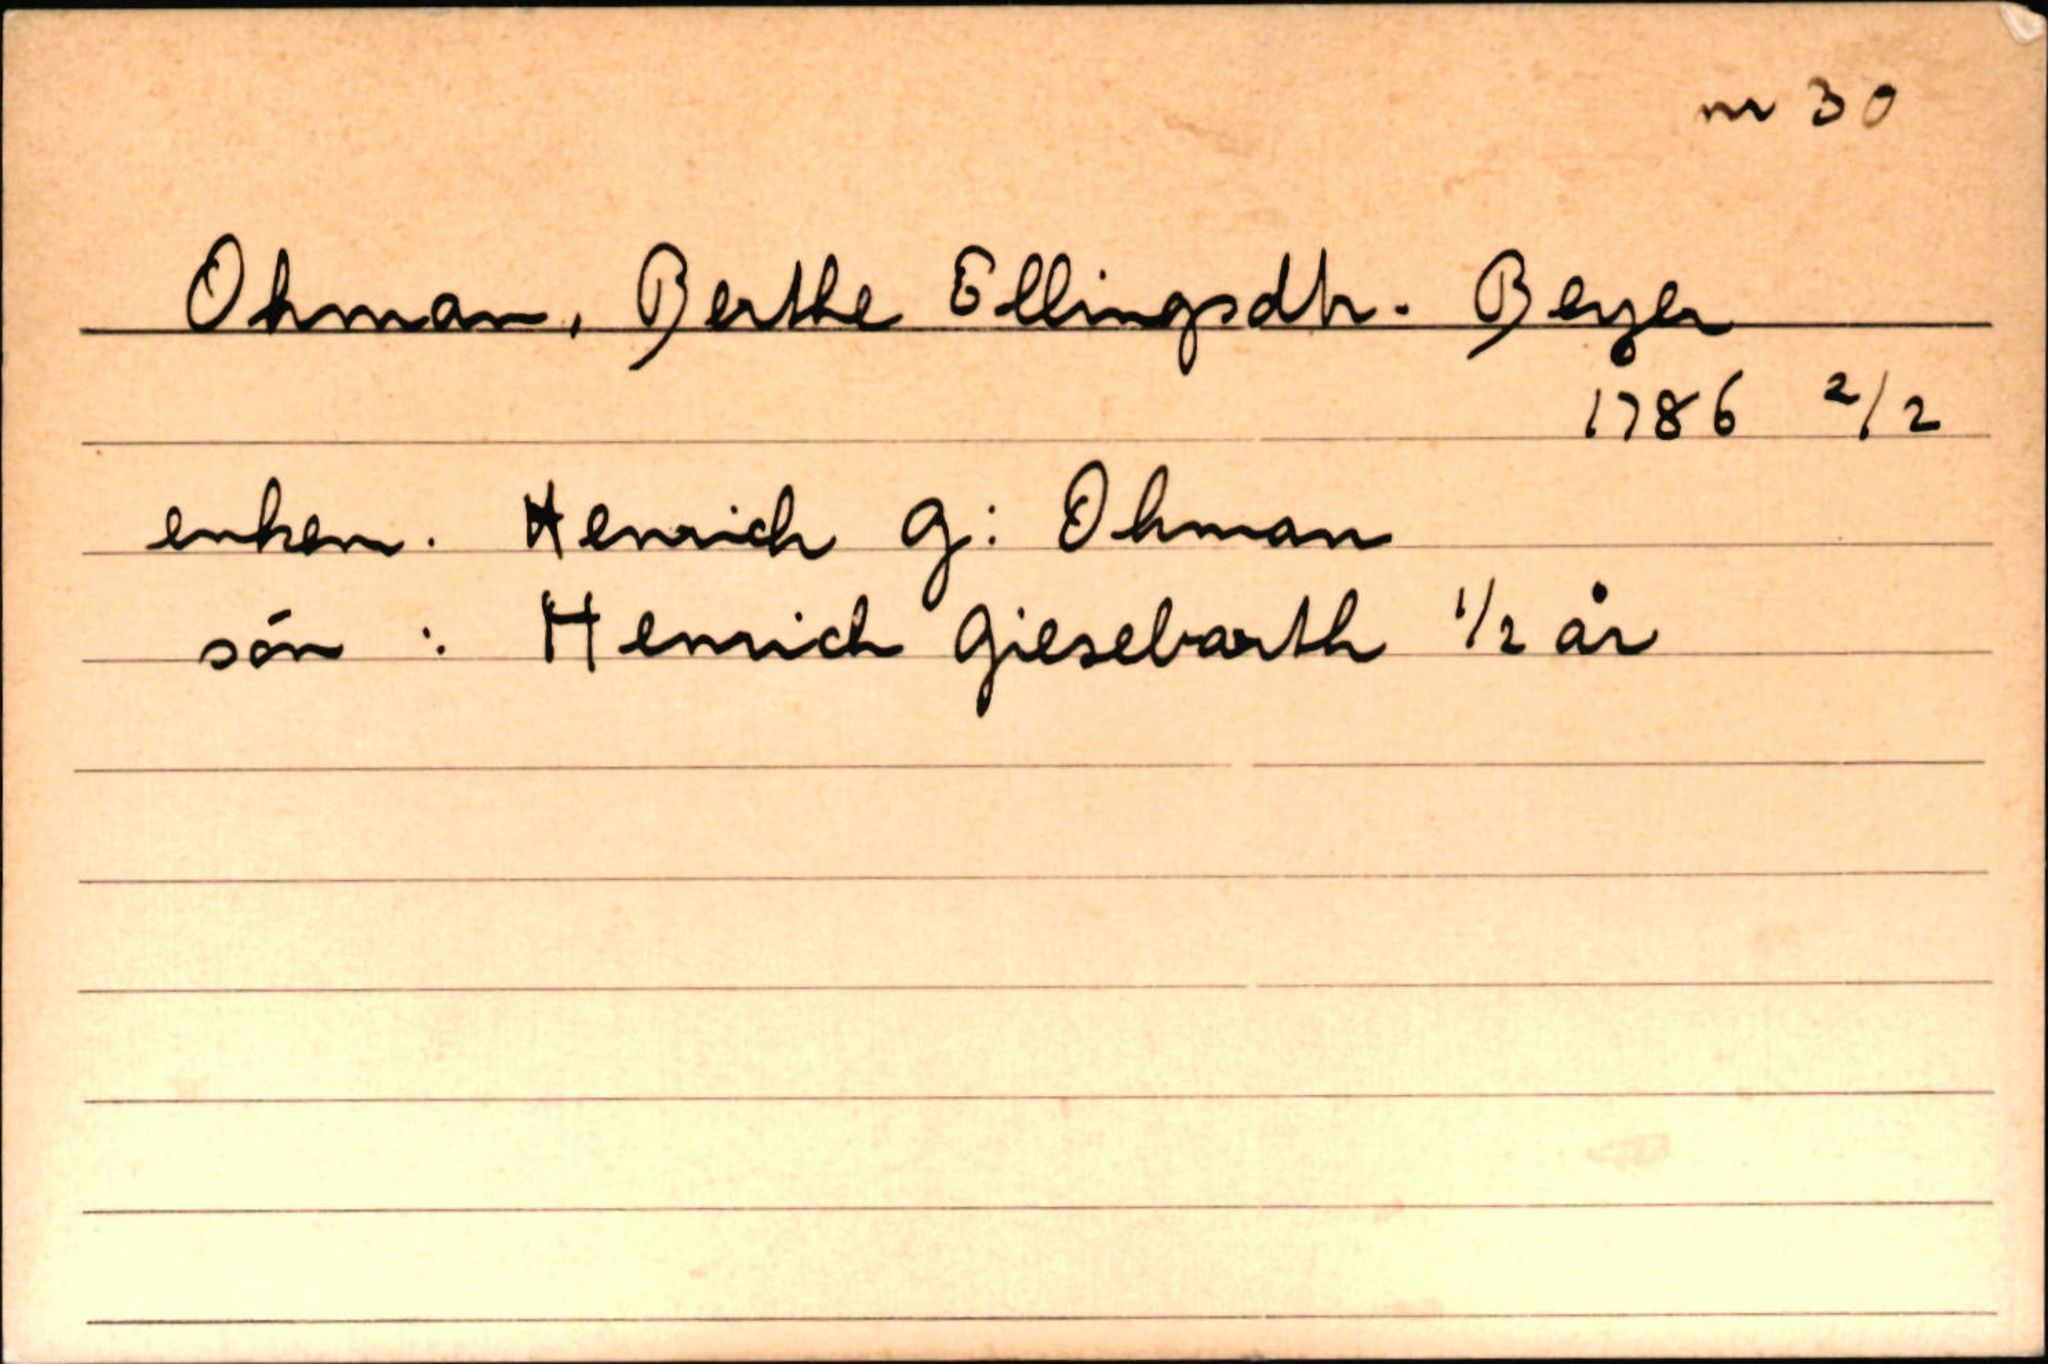 nr 30
Ohman, Berthe Ellingsdtr. Beyer
1786 2/2
enkem. Henrich G: Ohman
són : Henrich Giesebarth 1/2 år